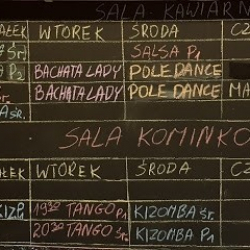 SALA KAWIARN
AŁEK WTOREK ŚRODA CZ
Śr. SALSA P1
P2 BACHATA LADY POLE DANCE
Śr. BACHATA LADY POLE DANCE MA
A śr.
SALA KOMINKO
AŁEK WTOREK ŚRODA C
KIZP. 19³⁰ TANGO P1 KIZOMBA śr.
20³⁰ TANGO śr. KIZOMBA P1